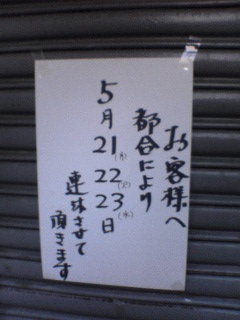 お客様へ
都合により
5月21(月)22(火)23(水)日
連休させて
頂きます